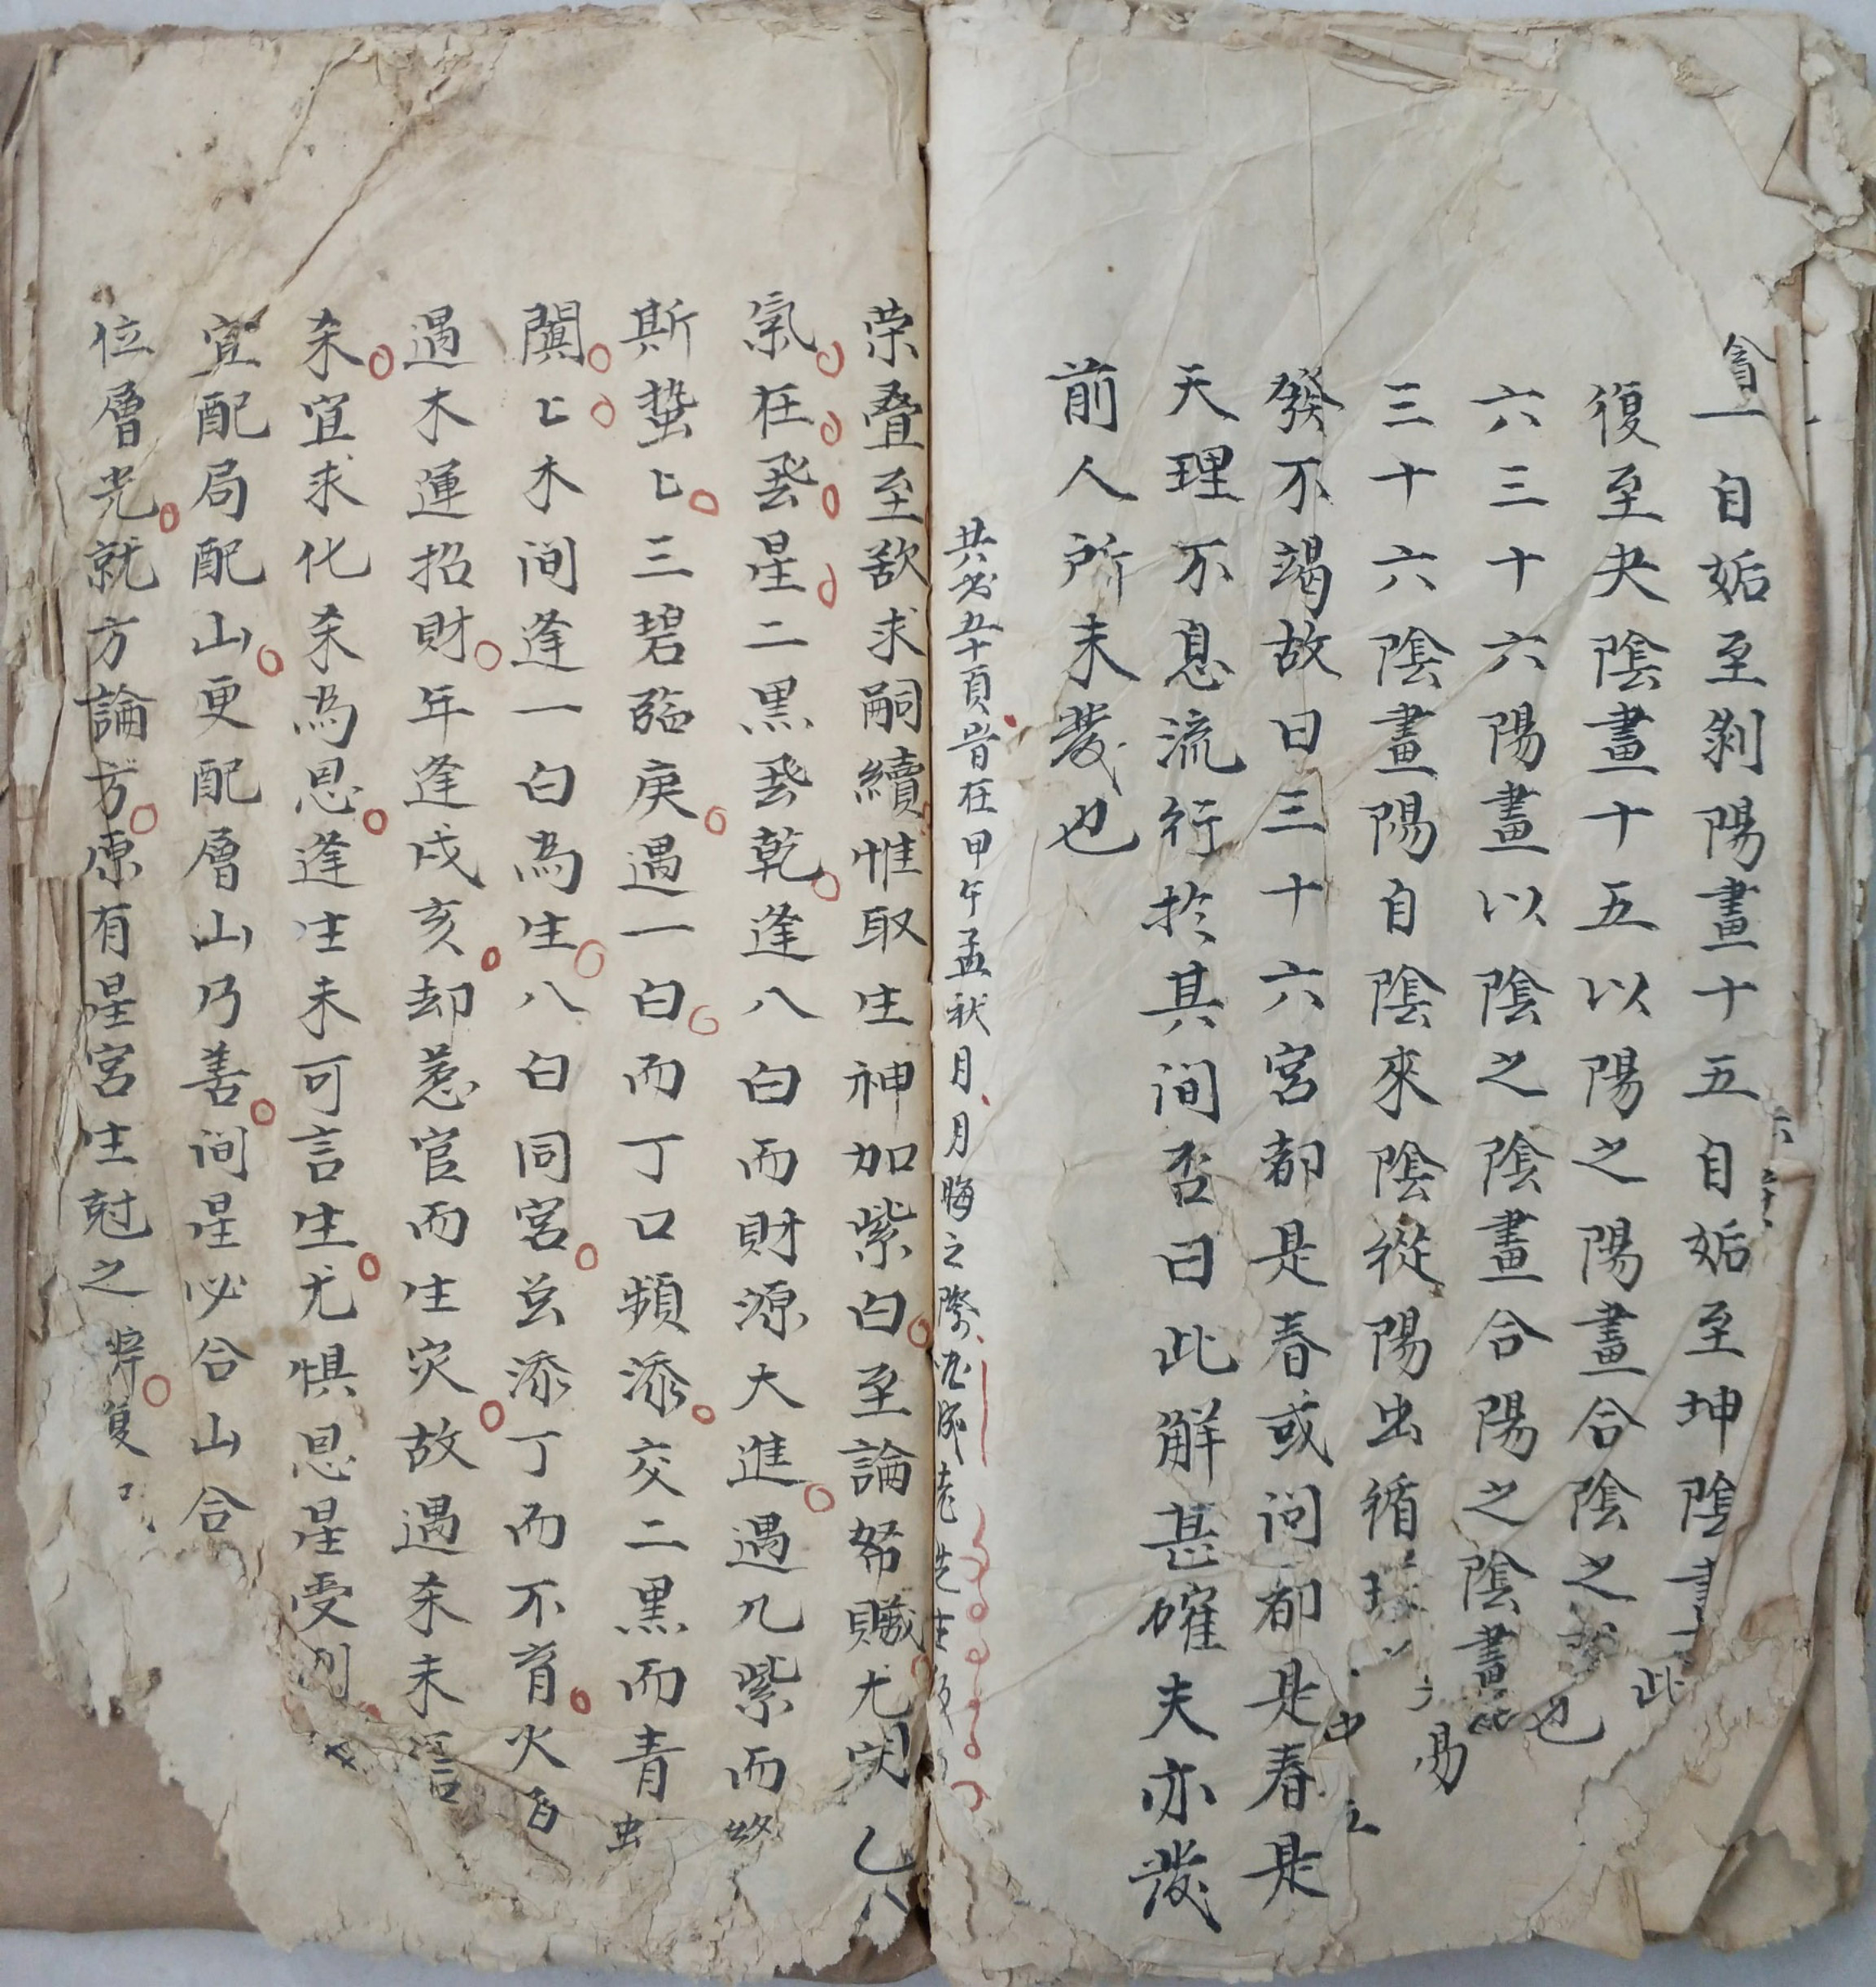 一自姤至剝陽畫十五自姤至坤陰畫
復至夬陰畫十五以陽之陽畫合陰之
六三十六陽畫以陰之陰畫合陽之陰畫 也 此
三十六陰畫陽自陰來陰從陽出循 易
發不竭故曰三十六宮都是春或问都是春是 中 之
天理不息流行於其间否曰此解甚確夫亦發
前人所未發也
共 五十頁 在甲午孟秋月月晦之際 老先生
荣叠至欲求嗣續惟取生神加紫白至論帑贓尤 乙八
氣在 星二黑 乾逢八白而財源大進遇九紫而螽
斯蟄匕三碧臨庚遇一白而丁口頻添交二黑而青虫
闐匕木间逢一白為生八白同宮 添丁而不育火
遇木運招財年逢戍亥却惹官而生灾故遇杀未言
杀宜求化杀為恩逢生未可言生尤惧恩星受
宜配局配山更配層山乃善间星必合山合
位層 就方論方原有星宮生尅之 复